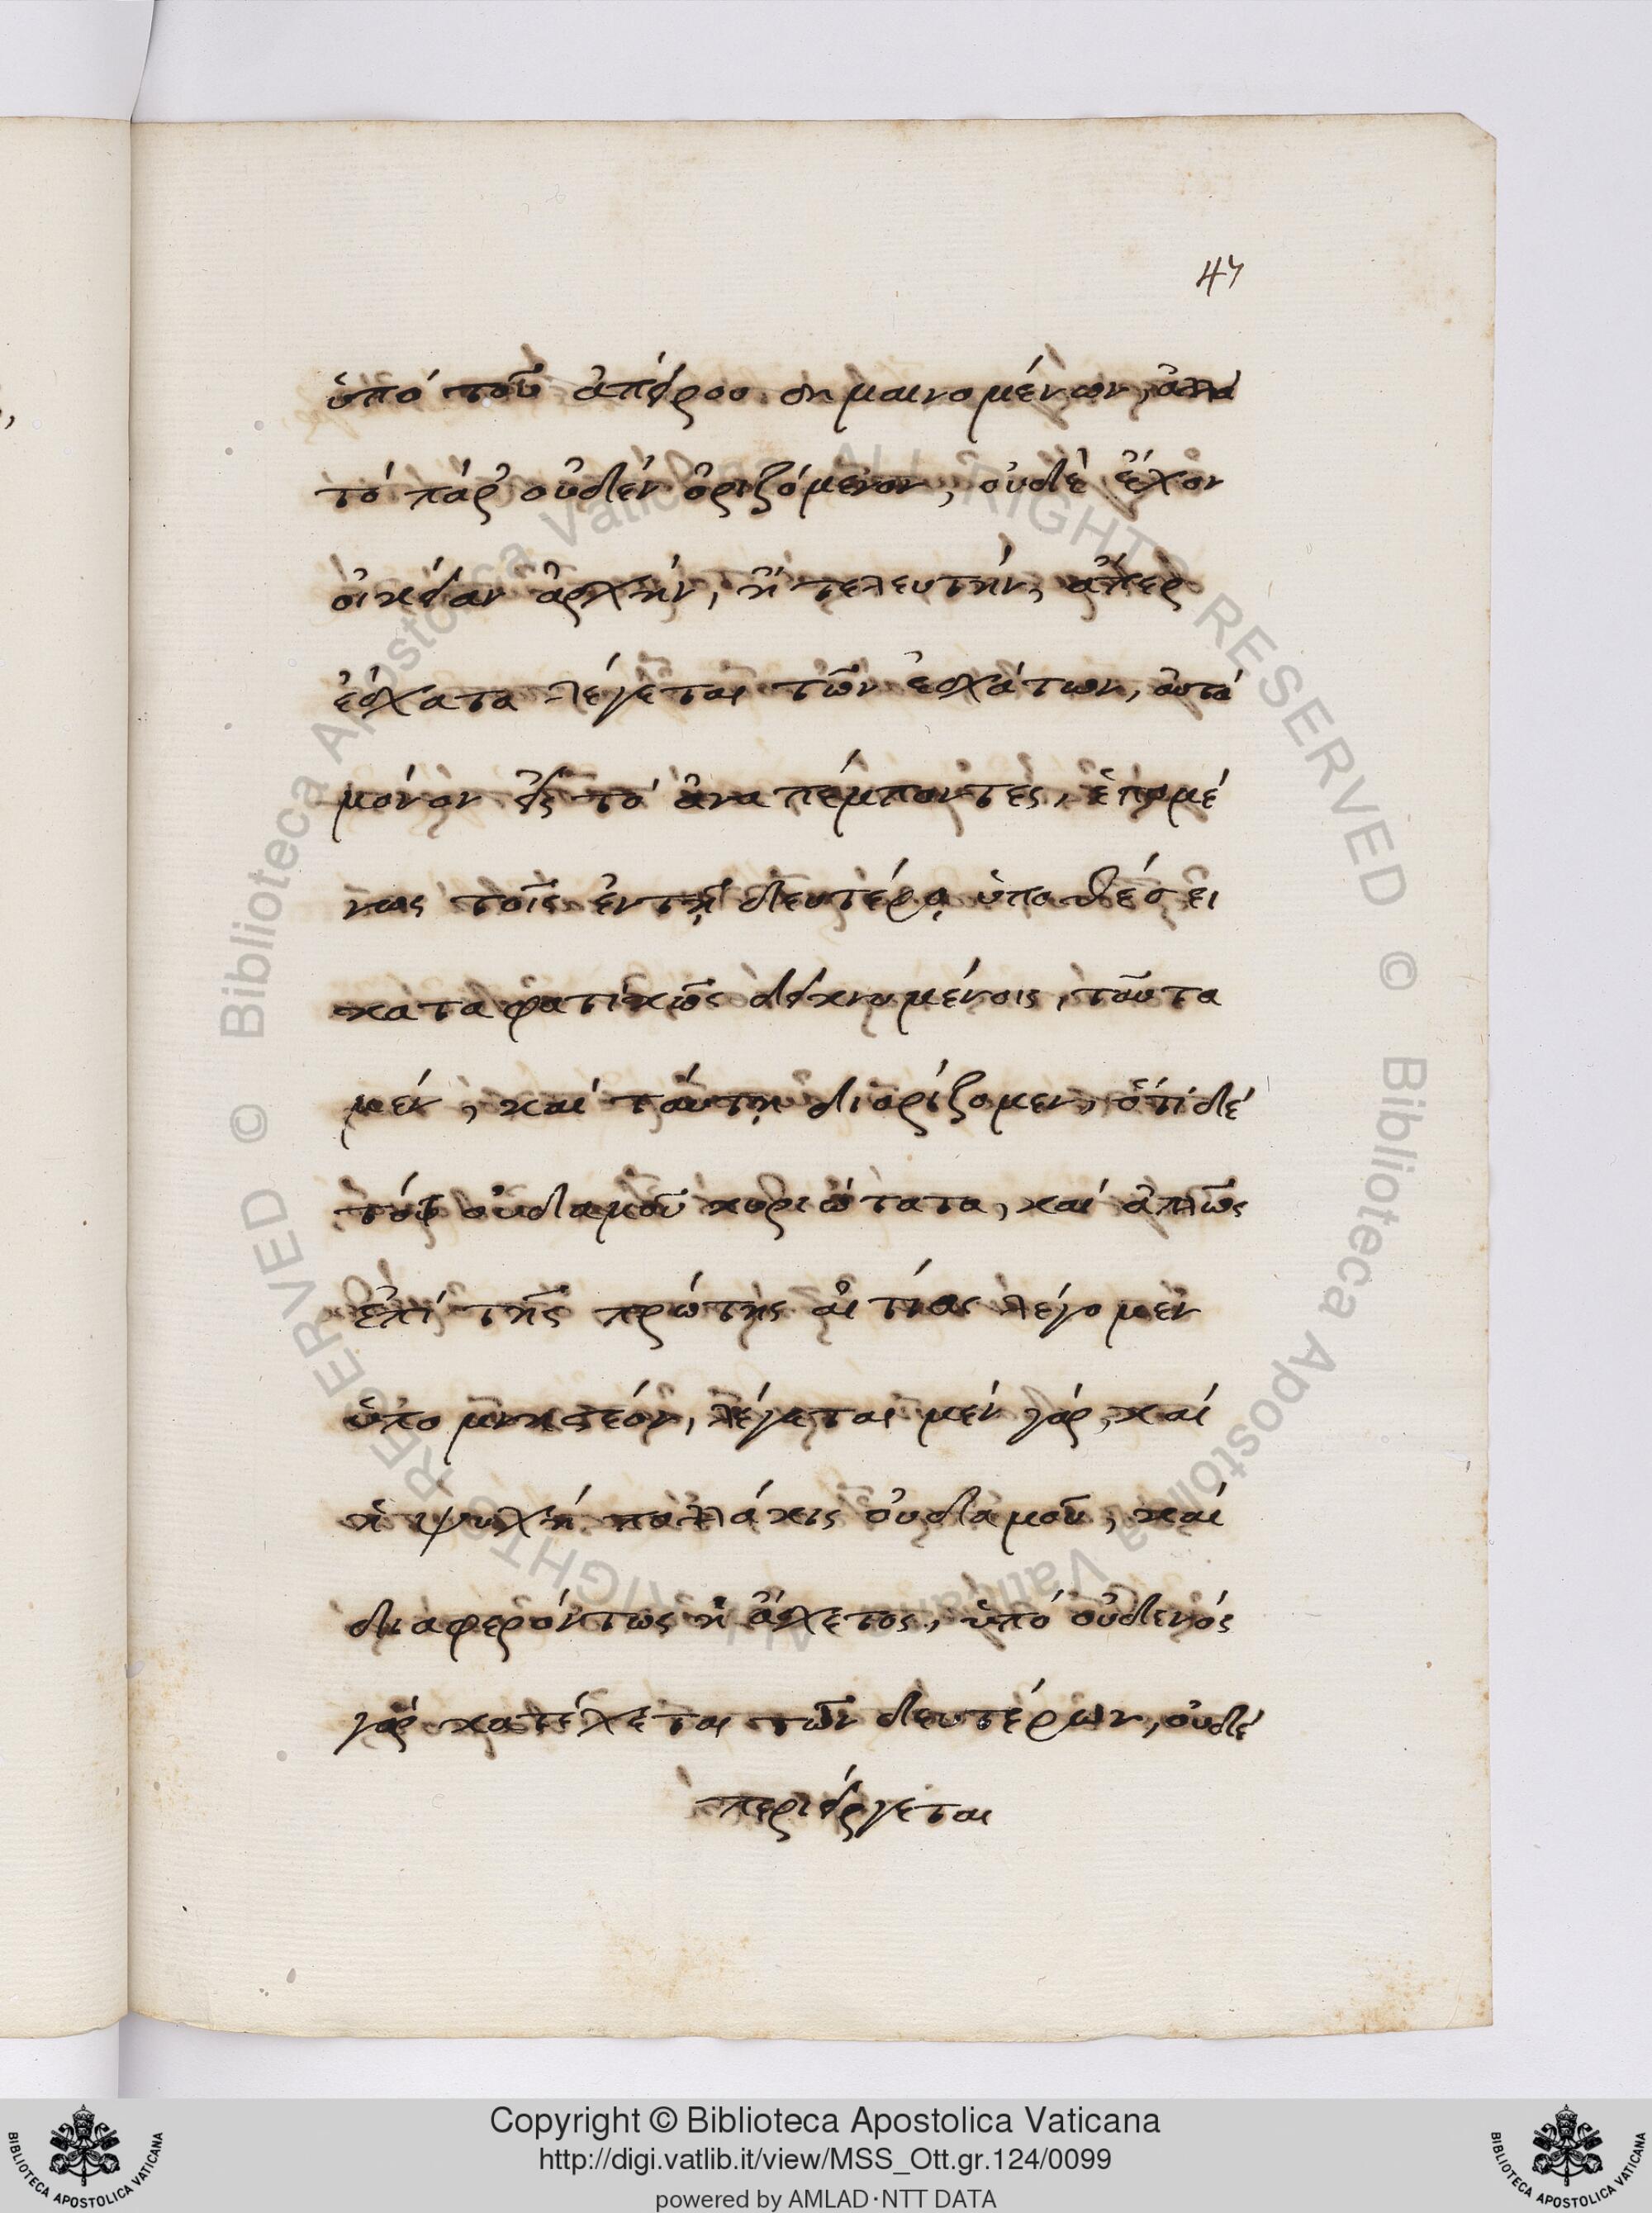 47
ὑπό τοῦ ἀπείρου σημαινομένων, ἀλλά
τό παρ' οὐδέν ὁριζόμενον, οὐδὲ ἔχον
οἰκείαν ἀρχήν, ἢ τελευτήν, ἅπερ
ἔσχατα λέγεται τῶν ἐσχάτων, αὐτό
μόνον εἰς τό ἓν ἀναπέμποντες, ἑπομέ
νως τοῖς ἐν τῇ δευτέρᾳ ὑποθέσει
καταφατικῶς δεικνυμένοις, ταῦτα
μέν, καί ταύτῃ διορίζομεν, ὅτι δέ
τό οὐδαμοῦ κυριώτατα, καί ἁπλῶς
ἐπί τῆς πρώτης αἰτίας λέγομεν
ὑπομνηστέον, λέγεται μέν γάρ, καί
ἡ ψυχή πολλάκις οὐδαμοῦ, καί
διαφερόντως ἡ ἄσχετος, ὑπό οὐδενός
γάρ κατέχεται τῶν δευτέρων, οὐδέ
περιείργεται
© Biblioteca Apostolica Vaticana ALL RIGHTS RESERVED © Biblioteca Apostolica Vaticana ALL RIGHTS RESERVED
BIBLIOTECA APOSTOLICA VATICANA
Copyright © Biblioteca Apostolica Vaticana
http://digi.vatlib.it/view/MSS_Ott.gr.124/0099
powered by AMLAD·NTT DATA
BIBLIOTECA APOSTOLICA VATICANA